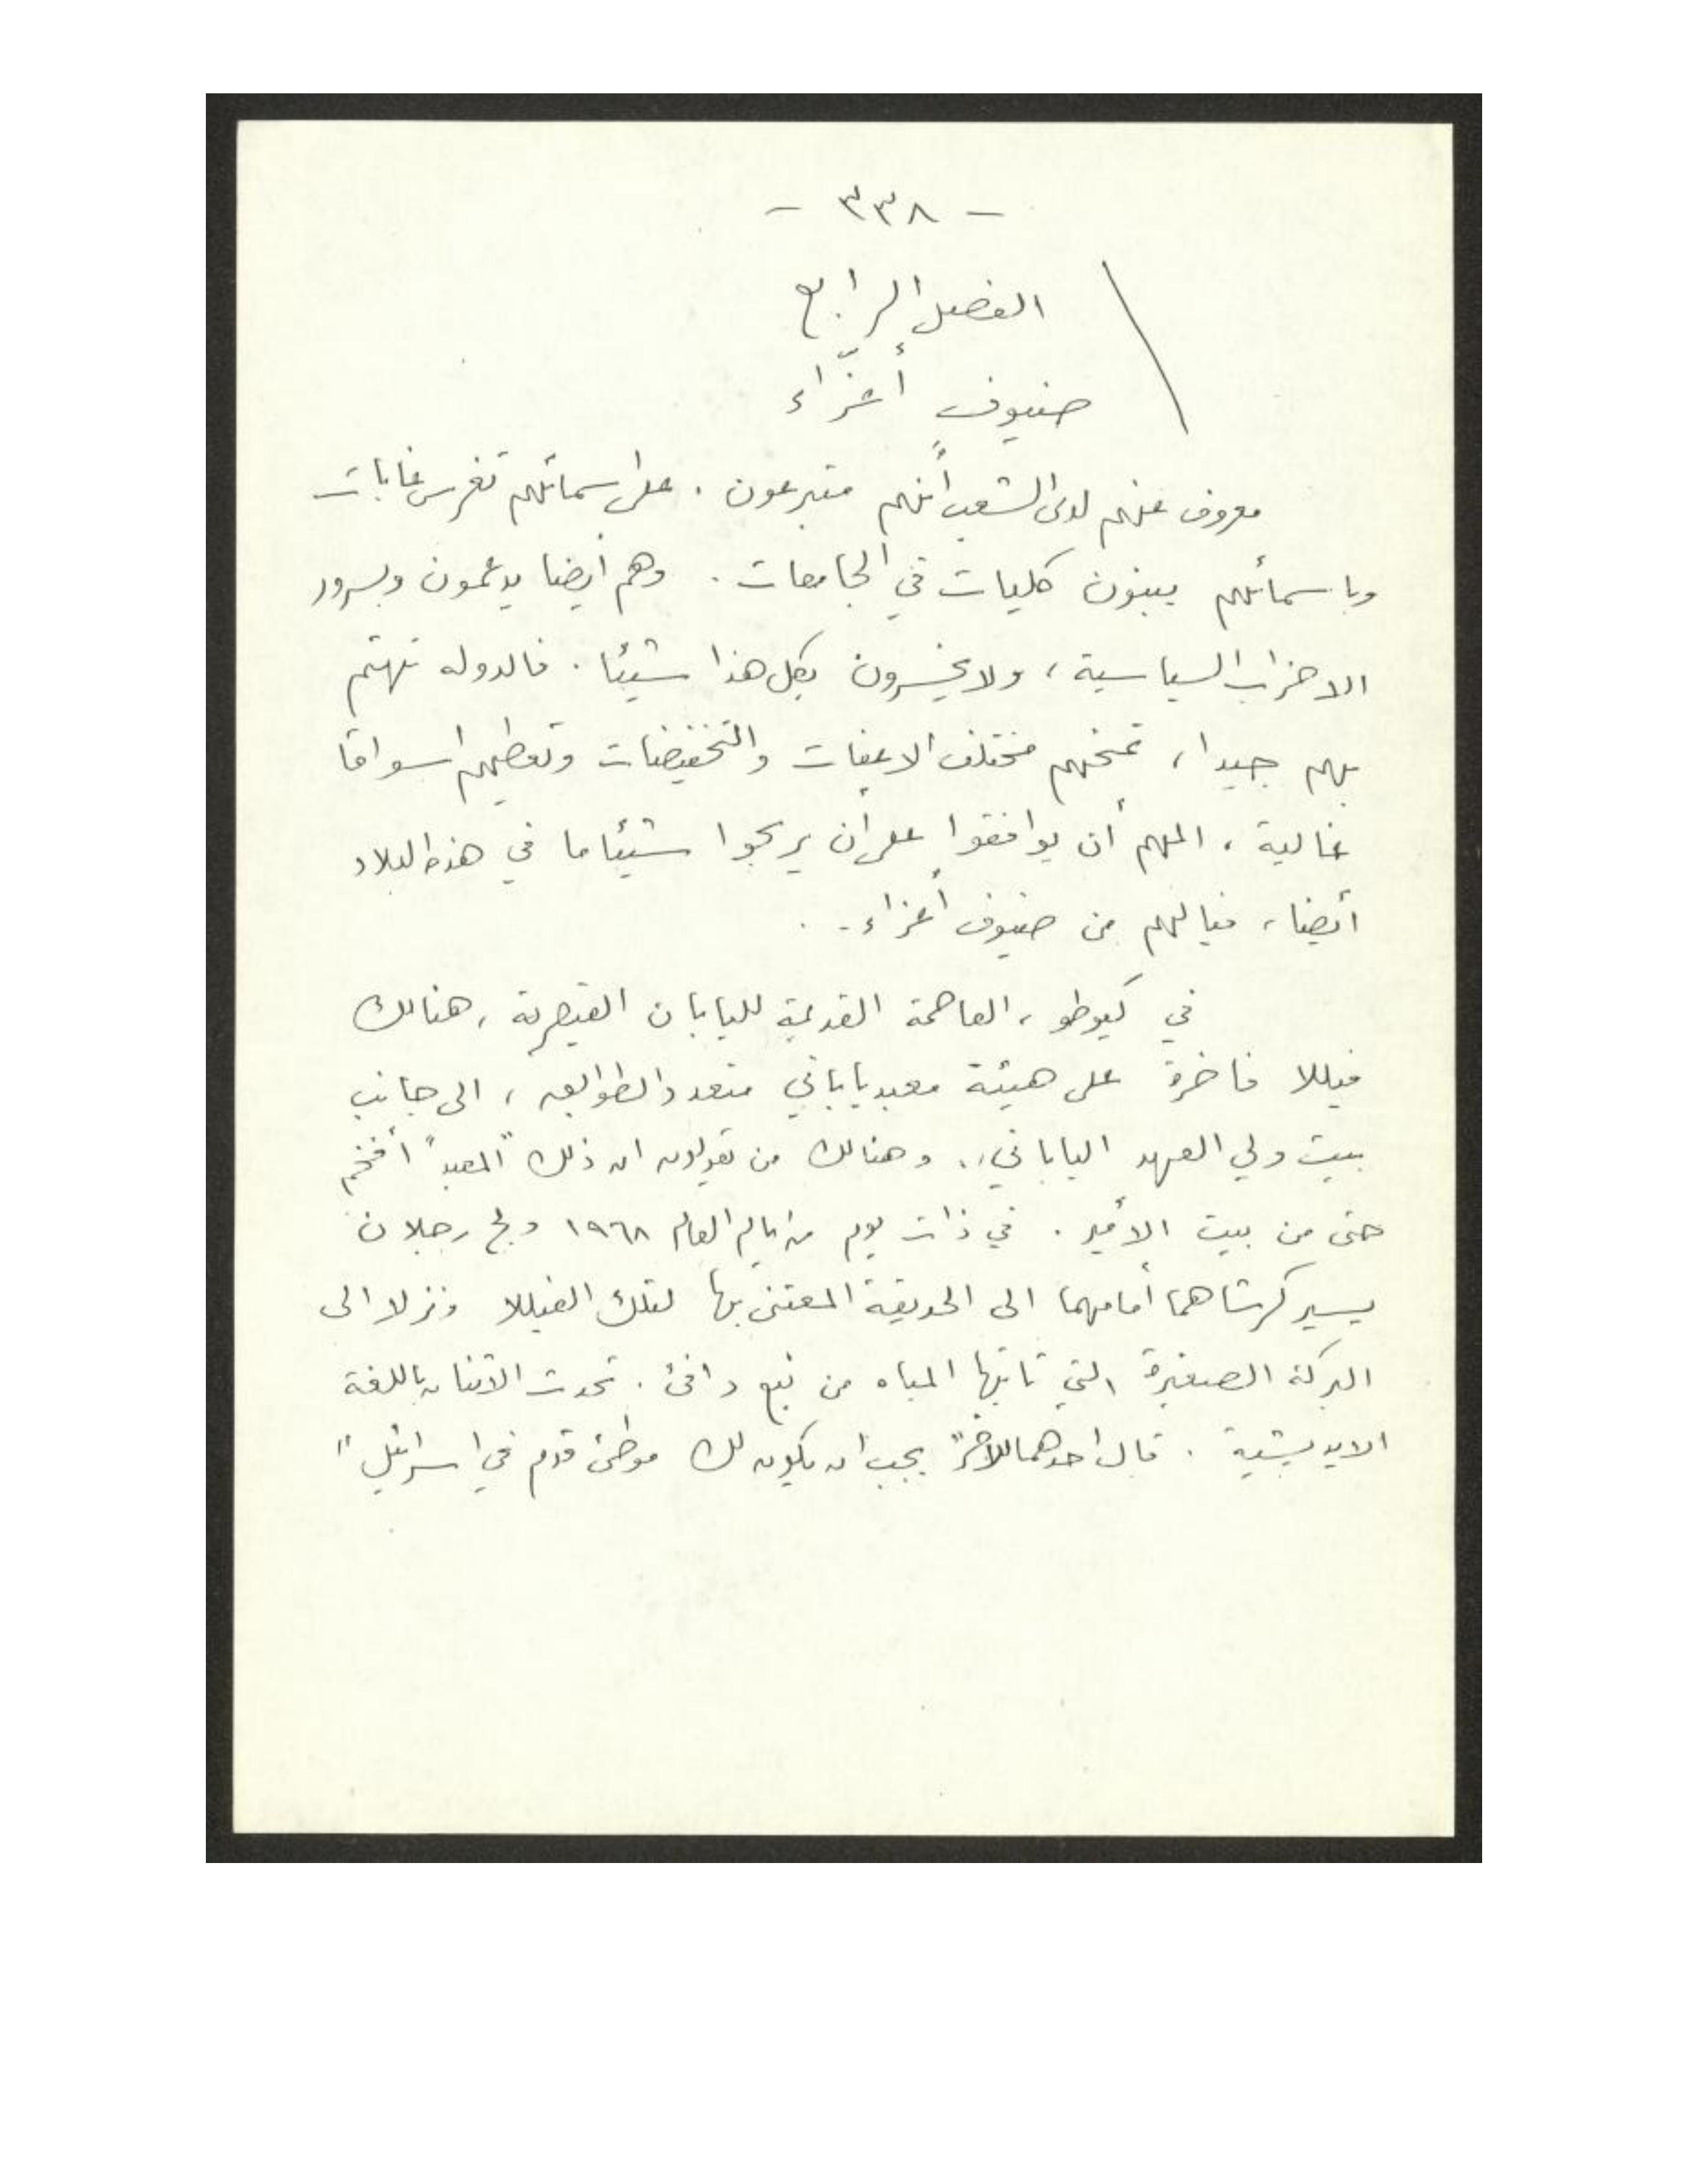 - ٣٣٨ -
الفصل الرابع
ضيوف أعزّاء
معروف عنهم لدى الشعب أنهم متبرعون . على اسمائهم تغرس غابات
وباسمائهم يبنون كليات في الجامعات . وهم أيضا يدعمون وبسرور
الاحزاب السياسية ، ولا يخسرون بكل هذا شيئا . فالدوله تهتم
بهم جيدا ، تمنحهم مختلف الاعفات والتخفيضات وتعطيهم اسواقا
غالية ، المهم أن يوافقوا على أن يربحوا شيئا ما في هذه البلاد
أيضا ، فيالهم من ضيوف أعزاء ..
في كيوطو ، العاصمة القديمة لليابان القيصرية ، هنالك
فيللا فاخرة على هيئة معبد ياباني متعدد الطوابق ، الى جانب
بيت ولي العهد الياباني . وهنالك من يقولون ان ذلك "المعبد" أفخم
حتى من بيت الأمير . في ذات يوم من ايام العام ١٩٦٨ ولج رجلان
يسير كرشاهما أمامهما الى الحديقة المعتنى بها لتلك الفيللا ونزلا الى
البركة الصغيرة التي تاتيها المياه من نبع دافئ . تحدث الاثنان باللغة
الايديشية . قال احدهما للآخر "يجب ان يكون لك موطئ قدم في اسرائيل"